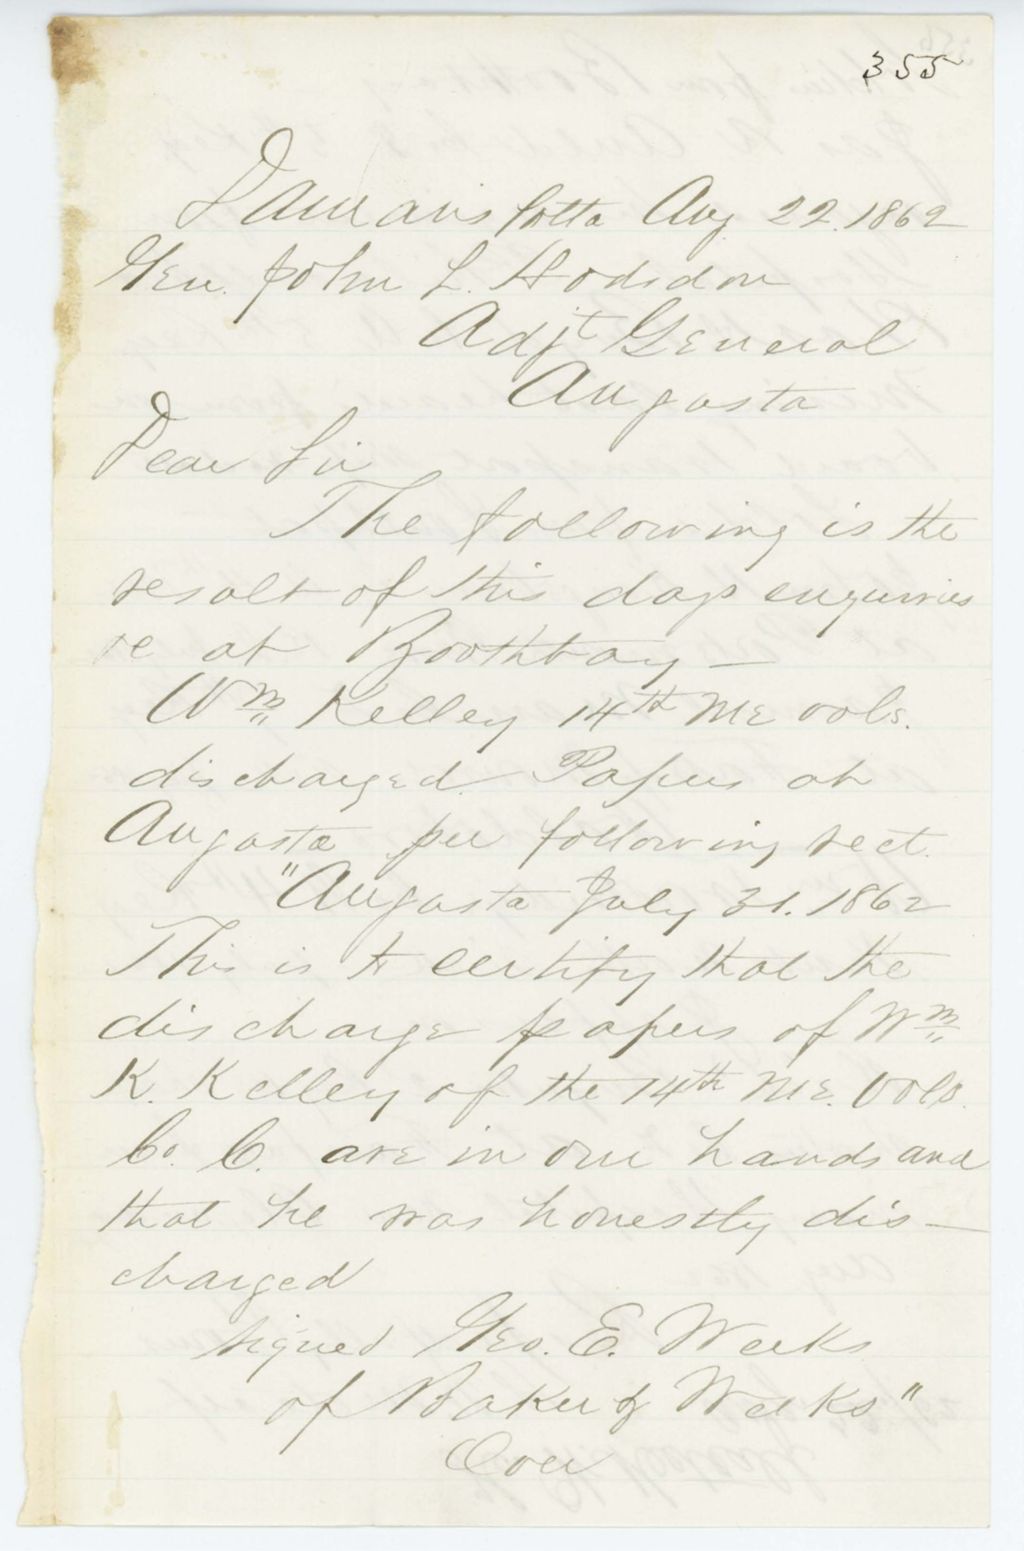 355
Damariscotta Aug 22. 1862
Gen. John L. Hodsdon
Adjt General
Augusta
Dear Sir
The following is the
result of this days enquiries
re at Boothbay —
Wm Kelley 14th Me vols.
discharged. Papers at
Augusta per following rect.
"Augusta July 31. 1862
This is to certify that the
discharge papers of Wm
K. Kelley of the 14th Me. Vols.
Co. C. are in our hands and
that he was honestly dis-
charged
signed Geo. E. Weeks
of Baker & Weeks"
Over